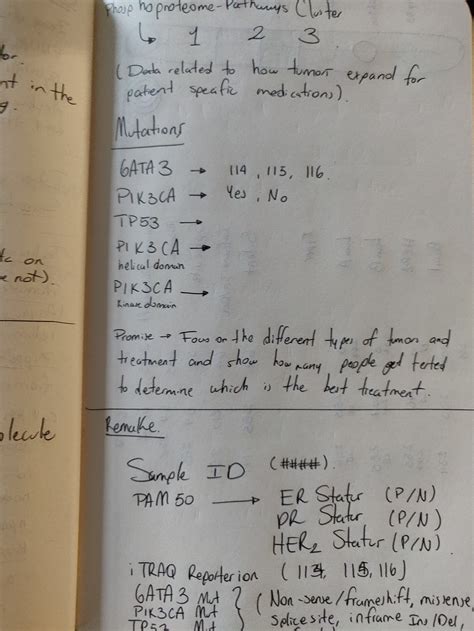 Phosphoproteome-Pathways Cluster
↳ 1 2 3
(Data related to how tumors expand for
patient specific medications).
Mutations
GATA3 → 114, 115, 116.
PIK3CA → Yes, No
TP53 →
PIK3CA →
helical domain
PIK3CA →
kinase domain
Promise → Focus on the different types of tumors and
treatment and show how many people get tested
to determine which is the best treatment.
Remake.
Sample ID (####).
PAM50 → ER Status (P/N)
PR Status (P/N)
HER2 Status (P/N)
iTRAQ Reporterion (114, 115, 116)
GATA3 Mut
PIK3CA Mut
TP53 Mut
? (Non-sense/frameshift, missense,
splicesite, inframe Ins/Del,
tor.
nt in the
g.
on
e not).
olecule